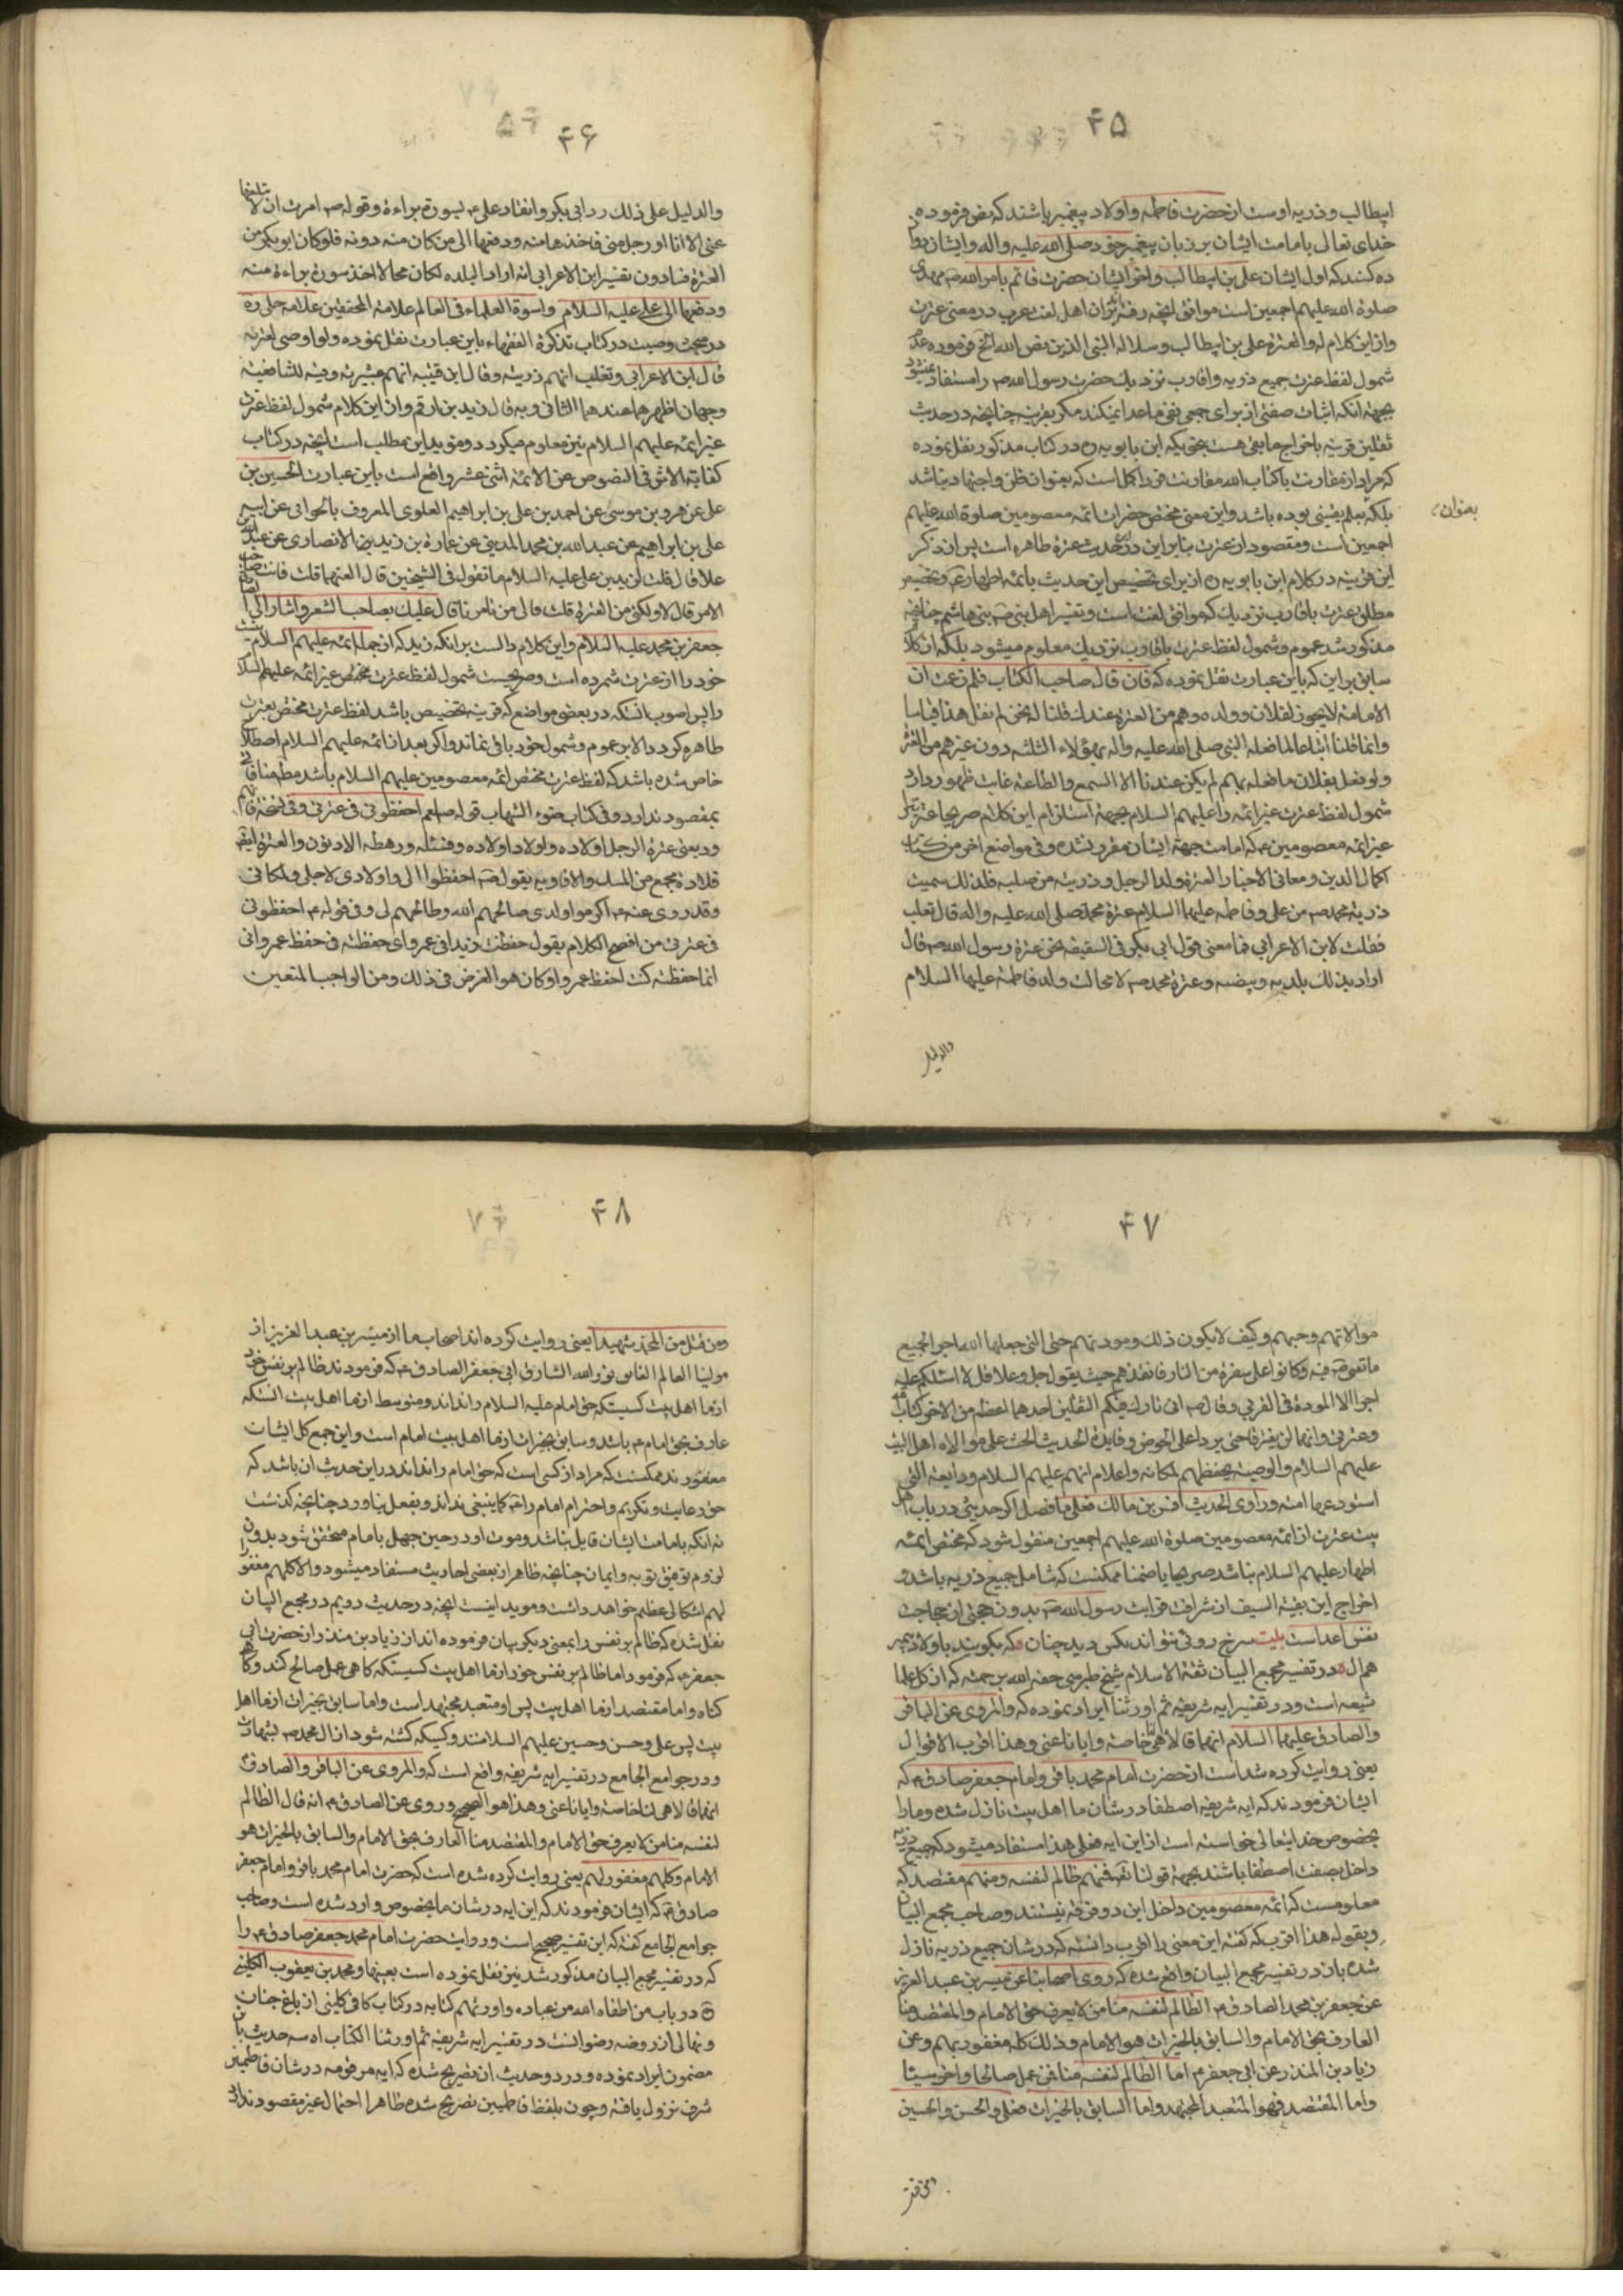 ۴۵
ابیطالب و ذریه اوست از حضرت فاطمه و اولاد پیغمبر باشند که بنص فرموده
خدای تعالی بامامت ایشان بر زبان پیغمبر خود صلی الله علیه واله وایشان دوازده
ده کنند که اول ایشان علی بن ابیطالب واخر ایشان حضرت قائم بامر الله مهدی
صلوة الله علیهم اجمعین است موافق انچه رفته‌اند اهل لغت عرب در معنی عترت
وازین کلام له والعترة علی بن ابیطالب وسلالة النبی الذین نص الله الخ فرموده عدم
شمول لفظ عترت جمیع ذریه واقارب نزدیك حضرت رسول الله ص را مستفاد نمیشود
بجهة انکه اثبات صفتی از برای جمعی نفی ماعدا نمیکند مکر بقرینه چنانچه در حدیث
ثقلین قرینه باخراج مابقی هست بنحویکه ابن بابویه ره در کتاب مذکور نقل نموده
که مراد از مقارنت با کتاب الله مقارنت فرد اکمل است که بعنوان ظن واجتهاد نباشد
بلکه بعلم یقینی بوده باشد واین معنی مختص حضرات ائمه معصومین صلوة الله علیهم
بعنوان
اجمعین است ومقصود از عترت بنابراین در حدیث عترة طاهره است پس از ذکر
این قرینه در کلام ابن بابویه ره از برای تخصیص این حدیث بائمه اطهار ع وتخصیص
مطلق عترت باقارب نزدیك که موافق لغت است وتفسیر اهل بنی ص بنی هاشم چنانچه
مذکور شد عموم وشمول لفظ عترت باقارب نزدیك معلوم میشود بلکه از کلام
سابق بر این که باین عبارت نقل نموده که فان قال صاحب الکتاب فلم زعمت ان
الامامة لا یجوز لفلان وولده وهم من العترة عندك قلنا له نحن لم نقل هذا قیاسا
وانما قلنا اتباعا لما فعله النبی صلی الله علیه واله بهؤلاء الثلثه دون غیرهم من العترة
ولو فعل بفلان ما فعله بهم لم یکن عندنا الا السمع والطاعة غایت ظهور دارد
شمول لفظ عترت غیر ائمه را علیهم السلام بجهة استلزام این کلام صریحا عترت
غیر ائمه معصومین ع که امامت جهة ایشان مقرر نشده وفی مواضع اخر من کتاب
اکمال الدین ومعانی الاخبار العترة ولد الرجل وذریته من صلبه فلذلك سمیت
ذریة محمد ص من علی وفاطمه علیهما السلام عترة محمد صلی الله علیه واله قال ثعلب
فقلت لابن الاعرابی فما معنی قول ابی بکر فی السقیفه نحن عترة رسول الله ص قال
اراد بذلك بلدته وبیضته وعترة محمد ص لا محالة ولد فاطمة علیها السلام
والدلیل
۴۶
والدلیل علی ذلك رد ابی بکر وانفاذ علی ع بسورة براءة وقوله ص امرت ان لا یبلغها
عنی الا انا او رجل منی فاخذها منه ودفعها الی من کان منه دونه فلو کان ابوبکر من
العترة نسبا دون تفسیر ابن الاعرابی انه اراد البلده لکان محالا اخذ سورة براءة منه
ودفعها الی علی علیه السلام واسوة العلماء فی العالم علامة المحققین علامه حلی ره
در مبحث وصیت در کتاب تذکرة الفقهاء باین عبارت نقل نموده ولو اوصی لعترته
قال ابن الاعرابی وثعلب انهم ذریته وقال ابن قتیبه انهم عشیرته وفیه للشافعیة
وجهان اظهرهما عندهما الثانی وبه قال زید بن ارقم وازین کلام شمول لفظ عترت
غیر ائمه علیهم السلام نیز معلوم میکردد ومؤید این مطلب است انچه در کتاب
کفایة الاثر فی النصوص عن الائمة اثنی عشر واقع است باین عبارت الحسین بن
علی عن هرون بن موسی عن احمد بن علی بن ابراهیم العلوی المعروف بالجوانی عن ابیه
علی بن ابراهیم عن عبد الله بن محمد المدینی عن عمارة بن زید الانصاری عن عبد الله بن
علا قال قلت لزید بن علی علیه السلام ما تقول فی الشیخین قال العنهما قلت فانت صاحب
الامر قال لا ولکنی من العترة قلت فالی من تامرنا قال علیك بصاحب الشعر واشار الی
جعفر بن محمد علیه السلام واین کلام دالست بر انکه زید که از جمله ائمه علیهم السلام نیست
خود را از عترت شمرده است وصریحست شمول لفظ عترت مختص غیر ائمه علیهم السلام
را پس اصوب انستکه در بعضی مواضع که قرینه تخصیص باشد لفظ عترت مختص بعترت
طاهره کردد والا بر عموم وشمول خود باقی بماند واکر بعد از ائمه علیهم السلام اصطلاح
خاص شده باشد که لفظ عترت مختص ائمه معصومین علیهم السلام باشد مطلقا منافاتی
بمقصود ندارد وفی کتاب ضوء الشهاب قوله صلعم احفظونی فی عترتی وفی نسخة قایم
وربعی عترة الرجل اولاده واولاد اولاده وفئله ورهطه الادنون والعترة ایضا
قلادة تجمع من المسك والافاویه یقول ص احفظوا الی واولادی لاجلی ولمکانی
وقد روی عنه ص اکرموا اولادی صالحهم الله وطالحهم لی وفی قوله ع احفظونی
فی عترتی من افصح الکلام یقول حفظت زیدا فی عمرو ای حفظته فی حفظ عمرو انی
انما حفظته کنت احفظ عمروا وکان هو الغرض فی ذلك ومن الواجب المتعین
۴۷
موالاتهم وحبهم وکیف لا یکون ذلك ومودتهم حتی التی جعلها الله اجرا لجمیع
ما تعنی ص فیه وکانوا علی حفرة من النار فانقذهم حیث یقول جل وعلا قل لا اسئلکم علیه
اجرا الا المودة فی القربی وقال ص انی تارك فیکم الثقلین احدهما اعظم من الاخر کتاب الله
وعترتی وانهما لن یفترقا حتی یردا علی الحوض وفایدة الحدیث الحث علی موالاة اهل البیت
علیهم السلام والوصیة بحفظهم لمکانه واعلام انهم علیهم السلام ودایعته التی
استودعها امته وراوی الحدیث انس بن مالك فعلی ما فصل اکر حدیثی در باب اهل
بیت عترت از ائمه معصومین صلوة الله علیهم اجمعین منقول شود که مختص ائمه
اطهار علیهم السلام نباشد صریحا یا ضمنا ممکنست که شامل جمیع ذریه باشد و
اخراج این بقیة السیف از شرافت قرابت رسول الله ص بدون حجتی از لجاجت
نفس اعداست بیت سرخ روئی نتواند بکس دید چنان که بکویند باولاد پیمبر
هم ال در تفسیر مجمع البیان ثقة الاسلام شیخ طبرسی حفه الله برحمته که از کل علما
شیعه است ودر تفسیر ایه شریفه ثم اورثنا ایراد نموده که والمروی عن الباقر
والصادق علیهما السلام انهما قالا هی لنا خاصة وایانا عنی وهذا اقرب الاقوال
یعنی روایت کرده شداست از حضرت امام محمد باقر وامام جعفر صادق ع که
ایشان فرمودند که ایه شریفه اصطفا در شان ما اهل بیت نازل شده ومارا
بخصوص خدایتعالی خواسته است ازین ایه فعلی هذا مستفاد میشود که جمیع ذریه
داخل بصفت اصطفا باشند بجهة قوله تعالی فمنهم ظالم لنفسه ومنهم مقتصد که
معلومست که ائمه معصومین داخل این دو فرقه نیستند وصاحب مجمع البیان
وبقوله هذا اقرب که کفته این معنی را اقرب دانسته که در شان جمیع ذریه نازل
شده باز در تفسیر مجمع البیان واقع شده که روی اصحابنا عن میسر بن عبد العزیز
عن جعفر بن محمد الصادق ع الظالم لنفسه منا من لا یعرف حق الامام والمقتصد منا
العارف بحق الامام والسابق بالخیرات هو الامام وذلك کله مغفور بهم وعن
زیاد بن المنذر عن ابی جعفر ع اما الظالم لنفسه منا فمن عمل صالحا واخر سیئا
واما المقتصد فهو المتعبد المجتهد واما السابق بالخیرات فعلی والحسن والحسین
۴۸
ومن قتل من ال محمد شهیدا یعنی روایت کرده اند اصحاب ما از میسر بن عبد العزیز از
مولینا العالم نور الله الشارق ابی جعفر الصادق ع که فرمودند ظالم بر نفس خود
از ما اهل بیت کسیستکه حق امام علیه السلام را نداند ومتوسط از ما اهل بیت انستکه
عارف بحق امام ع باشد وسابق بخیرات از ما اهل بیت امام است واین جمع کل ایشان
مغفورند ممکنست که مراد از کسی است که حق امام را نداند در این حدیث ان باشد که
حق رعایت وتکریم واحترام امام را ع کما ینبغی نداند وبفعل نیاورد چنانچه کذشت
نه انکه بامامت ایشان قایل نباشد وموت او در حین جهل بامام متحقق شود بدون
لزوم توفیق توبه وایمان چنانچه ظاهر از بعضی احادیث مستفاد میشود والا کلهم مغفور
لهم اشکالی عظیم خواهد داشت ومؤید اینست انچه در حدیث دویم در مجمع البیان
نقل شده که ظالم بر نفس را بمعنی دیکر بیان فرموده اند از زیاد بن منذر از حضرت ابی
جعفر ع که فرمود اما ظالم بر نفس خود از ما اهل بیت کسیستکه کاهی عمل صالح کند وکاهی
کناه واما مقتصد از ما اهل بیت پس او متعبد مجتهد است واما سابق بخیرات از ما اهل
بیت پس علی وحسن وحسین علیهم السلامند وکسیکه کشته شود از ال محمد ص بشهادت
ودر جوامع الجامع در تفسیر ایه شریفه واقع است که والمروی عن الباقر والصادق
انهما قالا هی لنا خاصة وایانا عنی وهذا هو الصحیح وروی عن الصادق ع انه قال الظالم
لنفسه منا من لا یعرف حق الامام والمقتصد منا العارف بحق الامام والسابق بالخیرات هو
الامام وکلهم مغفور لهم یعنی روایت کرده شده است که حضرت امام محمد باقر وامام جعفر
صادق ع که ایشان فرمودند که این ایه در شان ما بخصوص وارد شده است وصاحب
جوامع الجامع کفته که این تفسیر صحیح است وروایت حضرت امام محمد جعفر صادق ع را
که در تفسیر مجمع البیان مذکور شد نیز نقل نموده است بعینها ومحمد بن یعقوب الکلینی
ره در باب من اصطفاه الله من عباده واورثهم کتابه در کتاب کافی کلینی از باغ جنان
ونهالی از روضه رضوانست در تفسیر ایه شریفه ثم اورثنا الکتاب اه سه حدیث باین
مضمون ایراد نموده ودر دو حدیث ان تصریح شده که ایه مرقومه در شان فاطمیین
شرف نزول یافته وچون بلفظ فاطمیین تصریح شده ظاهرا احتمال غیر مقصود ندارد